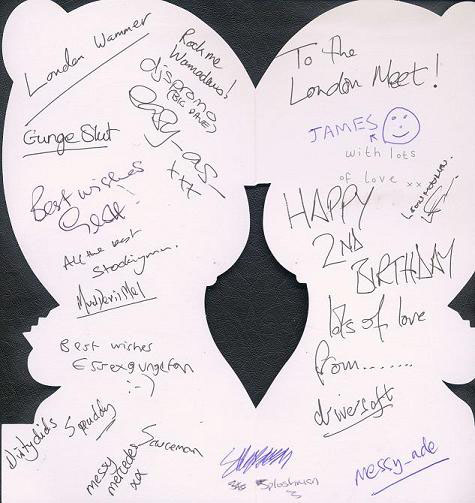 London Wammer
Rock me
Wamadeus!
djspromo
(BIG DAVE)
Gunge Slut
xxx
Best wishes
All the best
Stockingman.
MudDevilMel
Best wishes
Essexgungefan
:-)
Dirtydids
Spruddy
messy
mercedes
xx
Sauceman
To the
London Meet!
JAMES
with lots
of love xx
HAPPY
2ND
BIRTHDAY
lots of love
from.......
driversoft
Splashman
messy_ade